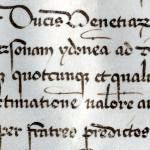 Ducis Venetiar
rsonam ydonea ad
quotcunque et quali
stimatione valore au
per fratres predictos